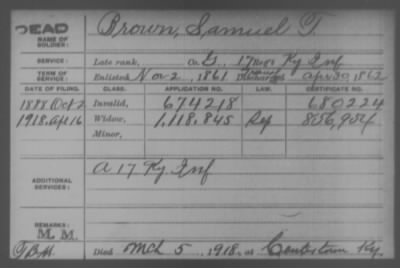 DEAD
NAME OF SOLDIER: Brown, Samuel T.
SERVICE: Late rank, Co. G, 17 Regt Ky Inf
TERM OF SERVICE: Enlisted Nov 2, 1861 Discharged Apr 30, 1862
DATE OF FILING. CLASS. APPLICATION NO. LAW. CERTIFICATE NO.
1888 Oct 2 Invalid, 674218 680224
1918, Ap 16 Widow, 1,118,845 Sep 856,954
Minor,
ADDITIONAL SERVICES: A 17 Ky Inf
REMARKS:
M. M.
Died Mch 5, 1918, at Ky.